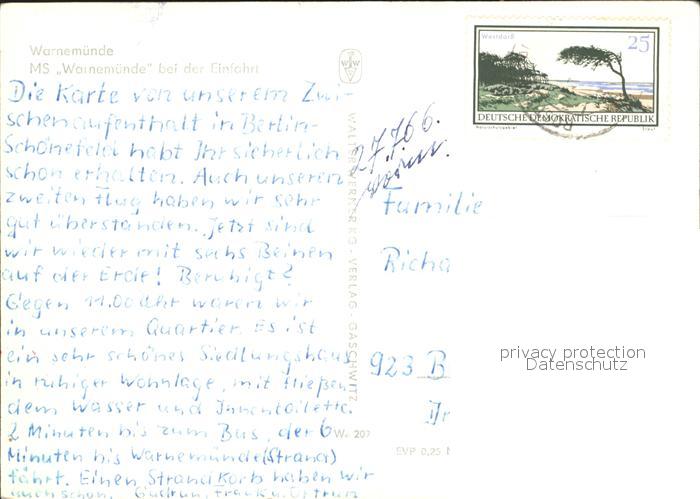 Warnemünde
MS „Warnemünde" bei der Einfahrt
Die Karte von unserem Zwi-
schenaufenthalt in Berlin-
Schönefeld habt Ihr sicherlich
schon erhalten. Auch unseren
zweiten Flug haben wir sehr
gut überstanden. Jetzt sind
wir wieder mit sechs Beinen
auf der Erde! Beruhigt?
Gegen 11.00 Uhr waren wir
in unserem Quartier. Es ist
ein sehr schönes Siedlungshaus
in ruhiger Wohnlage, mit fließen
dem Wasser und Innentoilette.
2 Minuten bis zum Bus, der 6
Minuten bis Warnemünde (Strand)
fährt. Einen Strandkorb haben wir
auch schon. Gudrun, Frank u. Ortrun
WALTER WERNER KG - VERLAG - GASCHWITZ
27.7.66.
Westdarß
25
DEUTSCHE DEMOKRATISCHE REPUBLIK
Naturschutzgebiet
Familie
Richa
923 B
We 207
EVP 0,25
privacy protection
Datenschutz